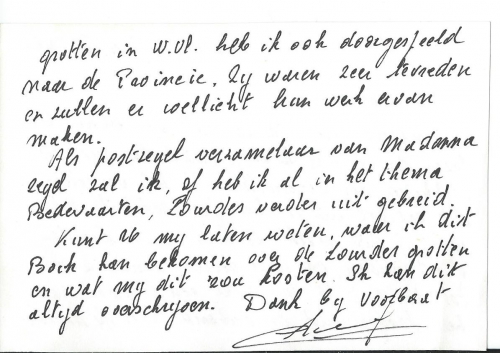 grotten in W.Vl. heb ik ook doorgespeeld
naar de Provincie. Zy waren zeer tevreden
en zullen er wellicht hun werk ervan
maken.
Als postzegel verzamelaar van Madonna
zegd zal ik, of heb ik al in het thema
Bedevaarten, Lourdes verder uit gebreid.
Kunt U my laten weten, waar ik dit
Boek kan bekomen over de Lourdes grotten
en wat my dit zou kosten. Ik kan dit
altyd overschryven. Dank by voorbaat